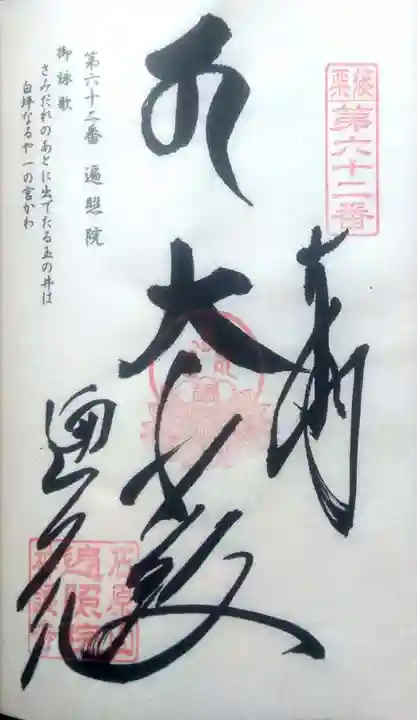 篠栗
第六十二番
奉
大悲殿
遍照院
第六十二番　遍照院
御詠歌
さみだれのあとに出でたる玉の井は
白坪なるや一の宮かわ
石原山
遍照院